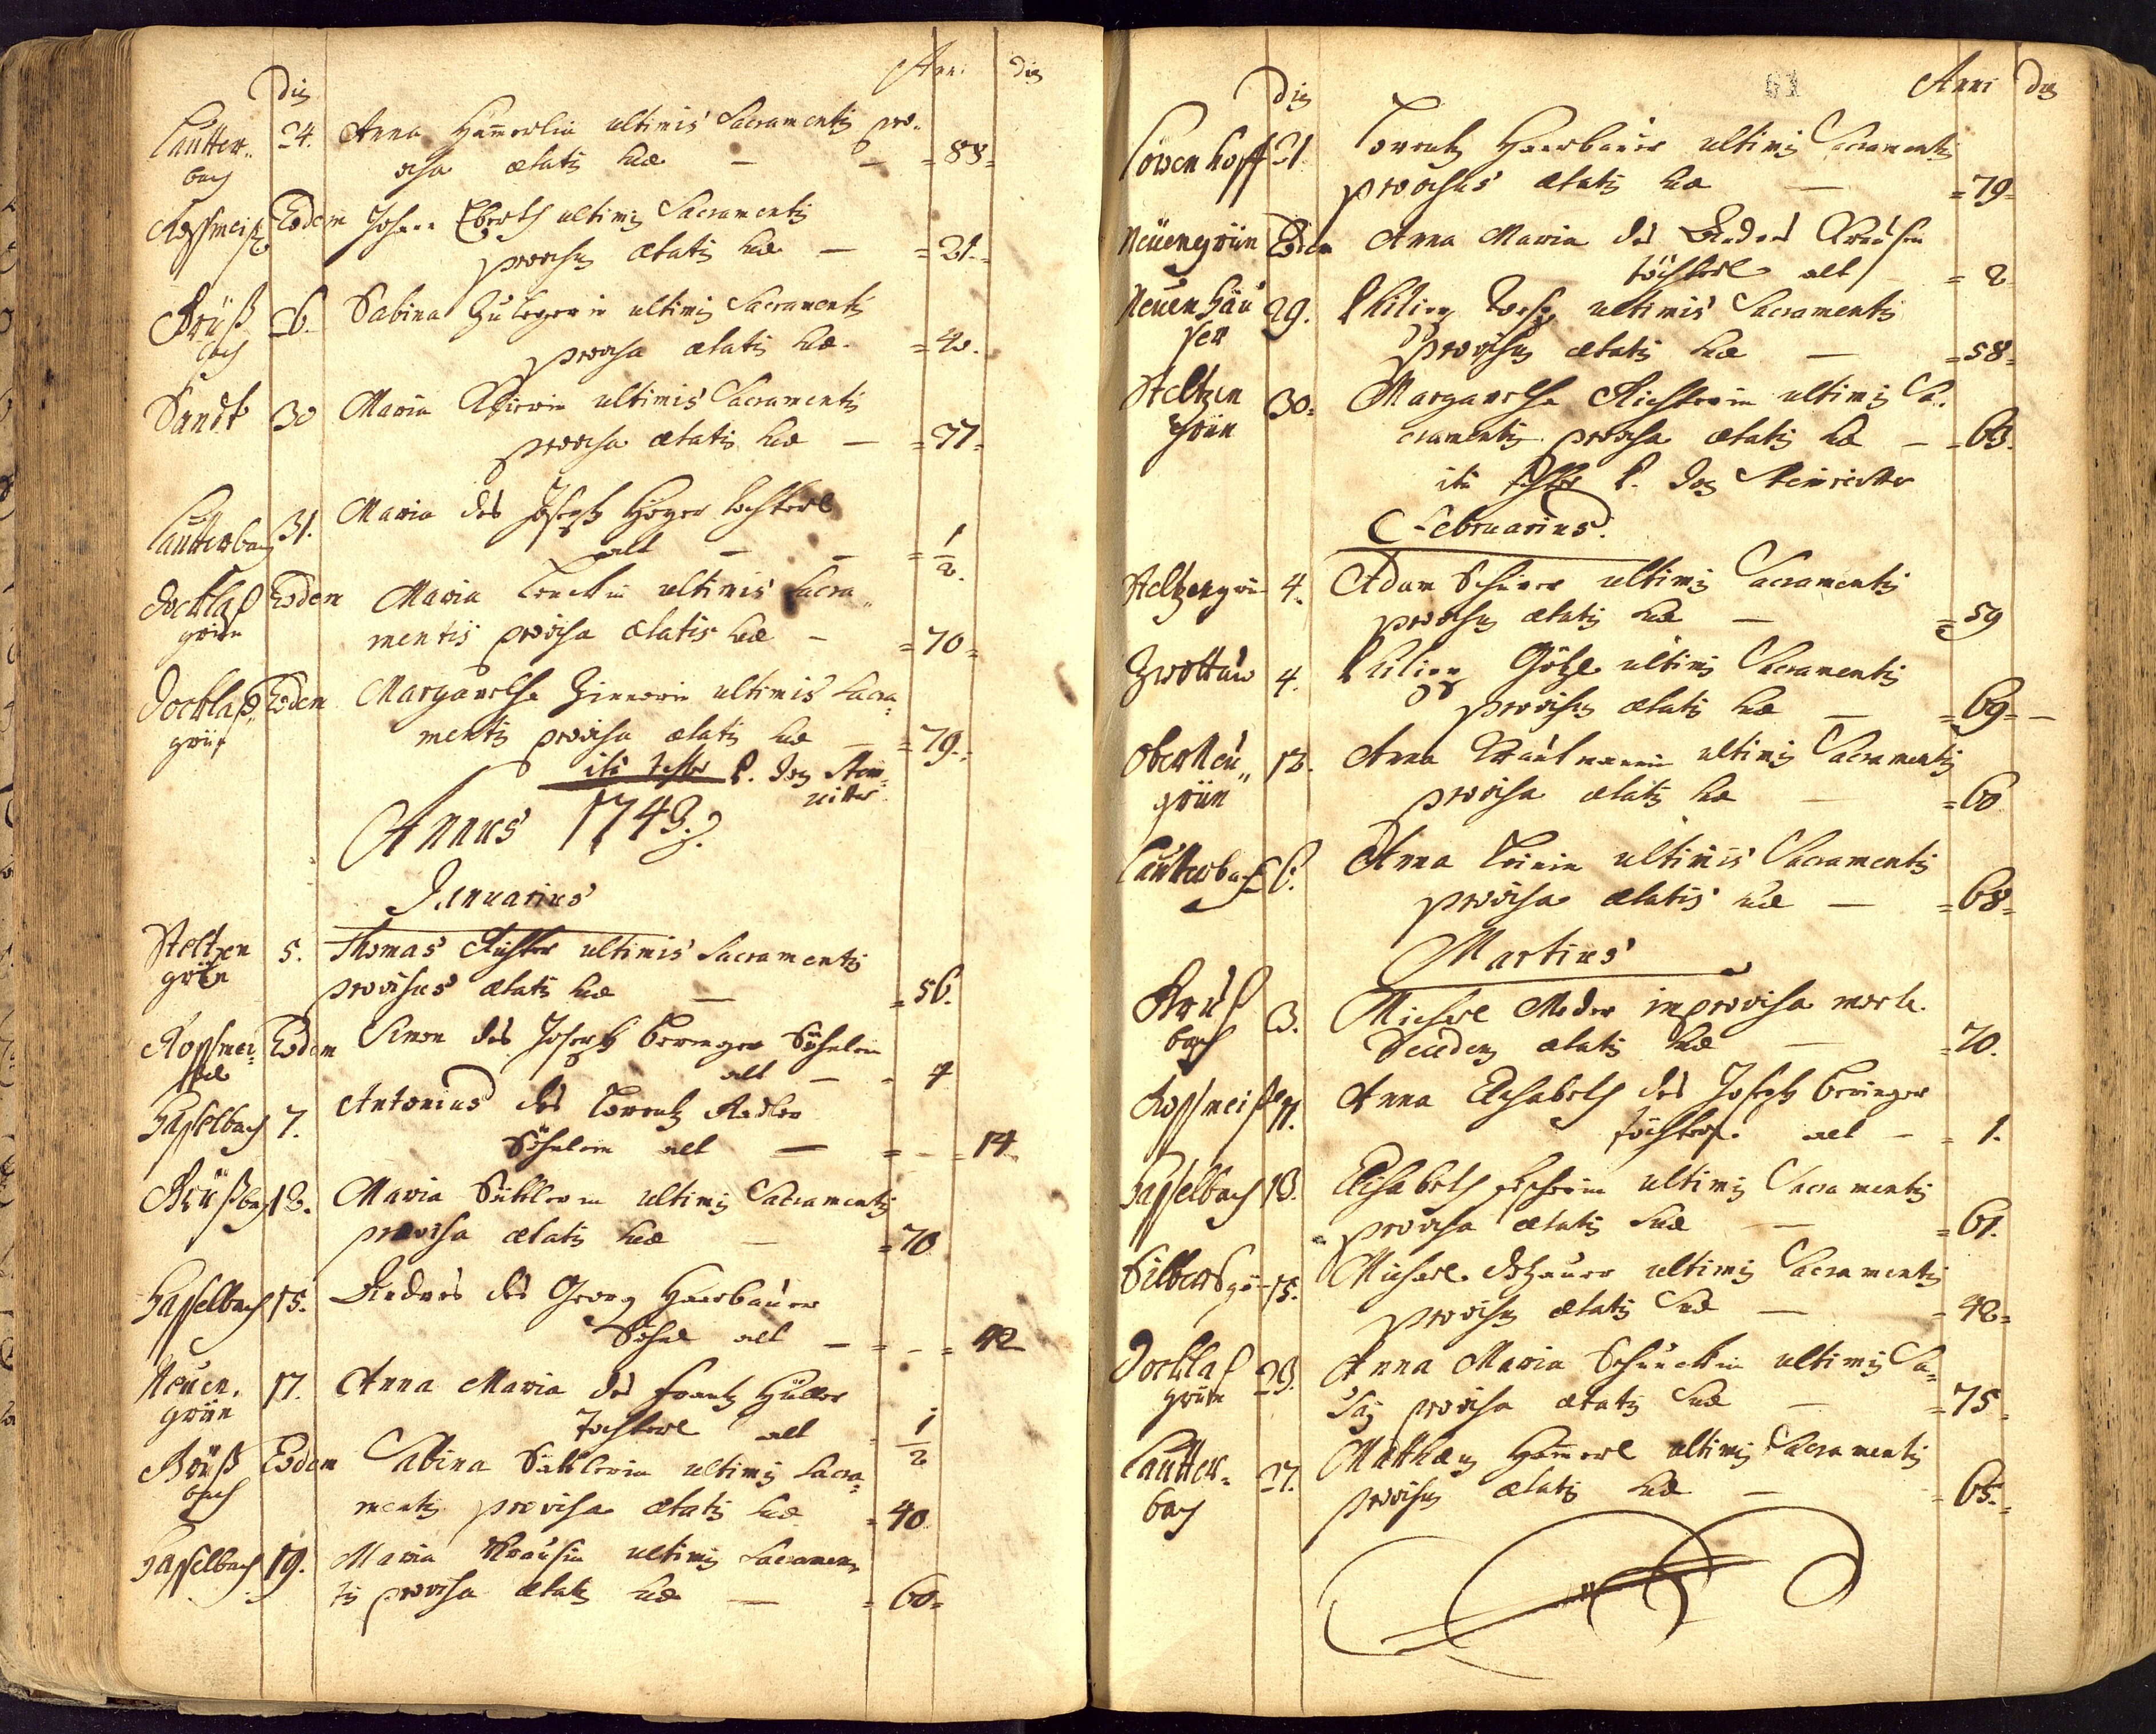 Die Anni Dies
Lautter„ 24. Anna Ham̄erlin ultimis Sacramentis pro„
bach visa ætatis suæ — — = 88=
Rossmeisl Eodem Johann Eberth ultimis Sacramentis
provisus ætatis suæ — = 21.=
Prüß 26. Sabina Zulegerin ultimis Sacramentis
bach provisa ætatis suæ. = 40.
Sandt 30 Maria ultimis Sacramentis
provisa ætatis suæ — = 77=
Lautterbach 31. Maria des Joseph Höger tochterl
alt — — = 1/2.
Docklaß Eodem Maria Lenckin ultimis Sacra„
grün mentis provisa ætatis suæ — = 70=
Docklaß„ Eodem Margaretha Zinnerin ultimis Sacra„
grün mentis provisa ætatis suæ — = 79.=
ita testor P. Jos Stein„
ritter
Annus 1743.
Januarius
Steltzen 5. Thomas Richter ultimis Sacramentis
grün provisus ætatis suæ — = 56.
Rossmei„ Eodem Simon des Joseph Beringer Söhnlein
sel alt — = 4
Hasselbach 7. Antonius des Lorentz Adler
Söhnlein alt — = — = 14
Prüßbach 12. Maria Sattlerin ultimis Sacramentis
provisa ætatis suæ — = 70
Hasselbach 15. Andres des Georg Haarbauer
Söhnl alt — = — = 42
Neuen„ 17. Anna Maria des Frantz Hüller
grün Tochterl alt = 1/2
Prüß Eodem Sabina Sattlerin ultimis Sacra„
bach mentis provisa ætatis suæ = 40
Hasselbach 19. Maria Krausin ultimis Sacramen„
tis provisa ætatis suæ — = 60=
61
Die Anni Dies
Löwenhoff 21. Lorentz Haarbauer ultimis Sacramentis
provisus ætatis suæ — = 79=
Neuengrün Eodem Anna Maria des Andres Krausen
töchterl alt — = 2
Neuenhäu 29. Philipp ultimis Sacramentis
ser provisus ætatis suæ — = 58=
Steltzen 30= Margaretha Richterin ultimis Sa„
grün cramentis provisa ætatis suæ — = 63.
ita testor P. Jos Steinritter
Februarius.
Steltzengrün 4. Adam ultimis Sacramentis
provisus ætatis suæ — = 59
Zwottau 4. Philipp Götzl ultimis Sacramentis
provisus ætatis suæ — = 69=—
Oberneu„ 13. Anna Trautmannin ultimis Sacramentis
grün provisa ætatis suæ — = 60
Lautterbach Anna ultimis Sacramentis
provisa ætatis suæ — = 68=
Martius
Prüß 3. Michael Meder improvisa morte
bach ætatis suæ — = 70.
Rossmeisl 11. Anna Elisabeth des Joseph Beringer
töchterl. alt — = 1.
Hasselbach 13. Elisabeth Fischerin ultimis Sacramentis
provisa ætatis suæ — = 61.
Silbersgrün 15. Michael Dotzauer ultimis Sacramentis
provisus ætatis suæ — = 42=
Docklaß 23. Anna Maria Schunckin ultimis Sa„
grün provisa ætatis suæ — = 75
Lautter„ 27. Matthæus Ham̄erl ultimis Sacramentis
bach provisus ætatis suæ — = 65=